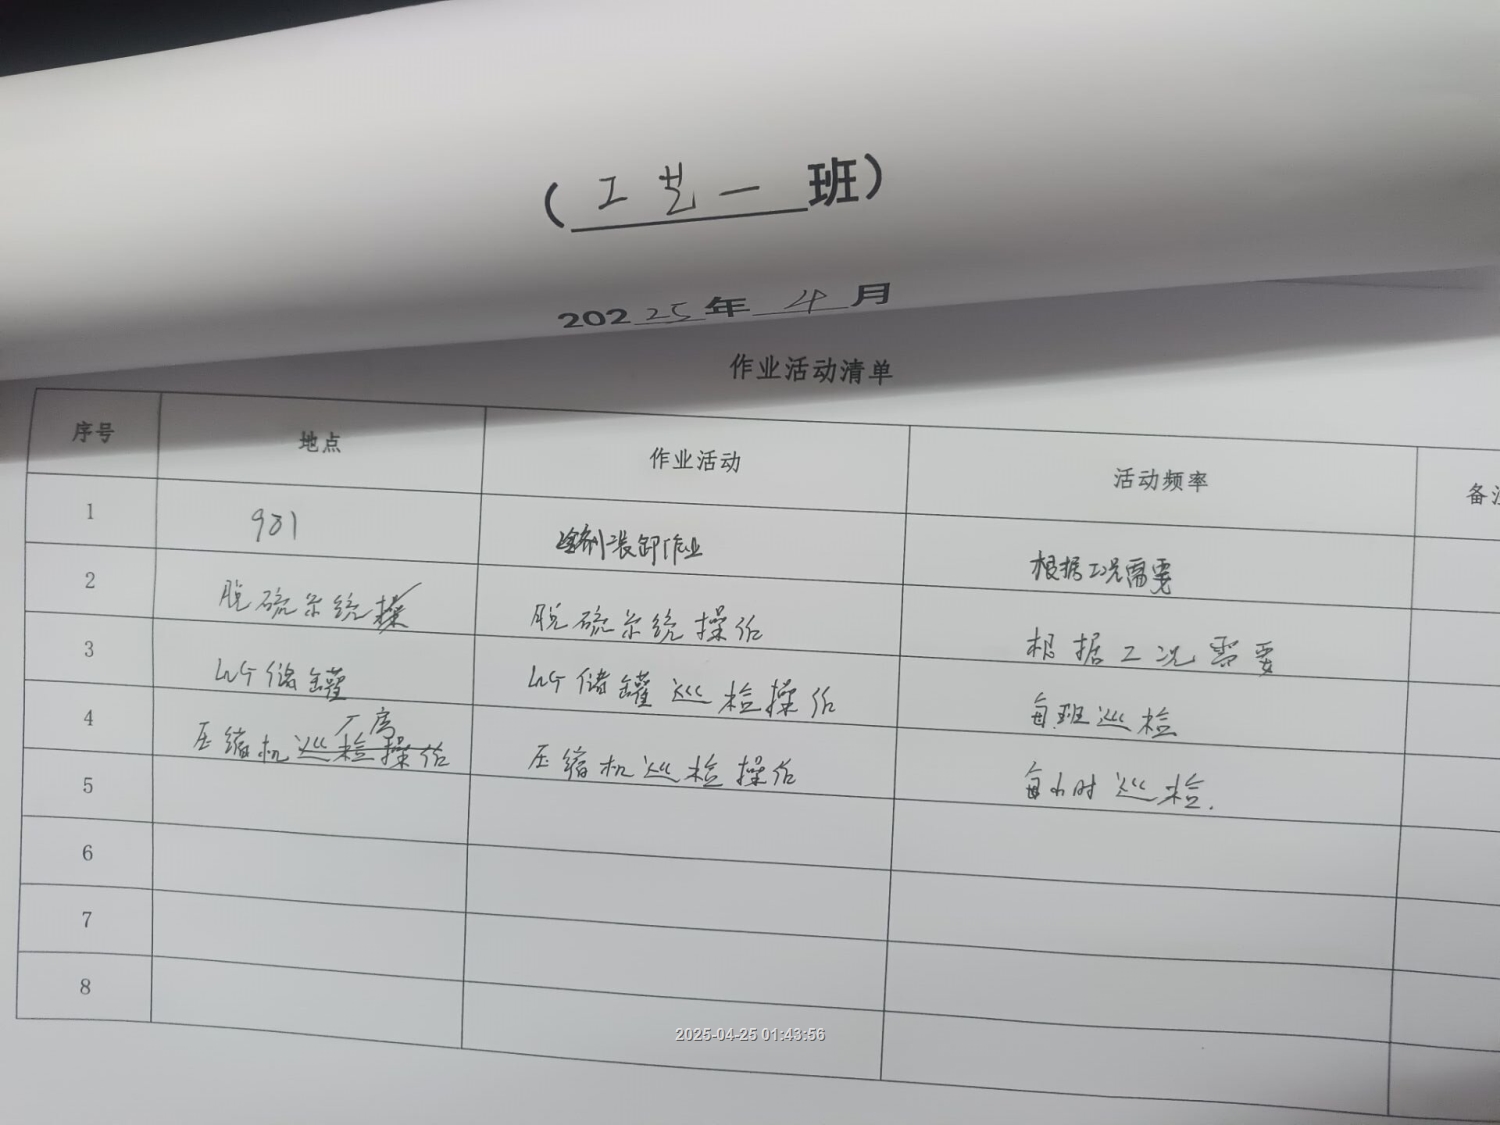 (工艺一班)
20225年4月
作业活动清单
序号 地点 作业活动 活动频率 备注
1 901 装卸作业 根据工况需要
2 脱硫系统 脱硫系统操作 根据工况需要
3 LNG储罐 LNG储罐巡检操作 每班巡检
4 压缩机厂房 压缩机巡检操作 每小时巡检.
5
6
7
8
2025-04-25 01:43:56